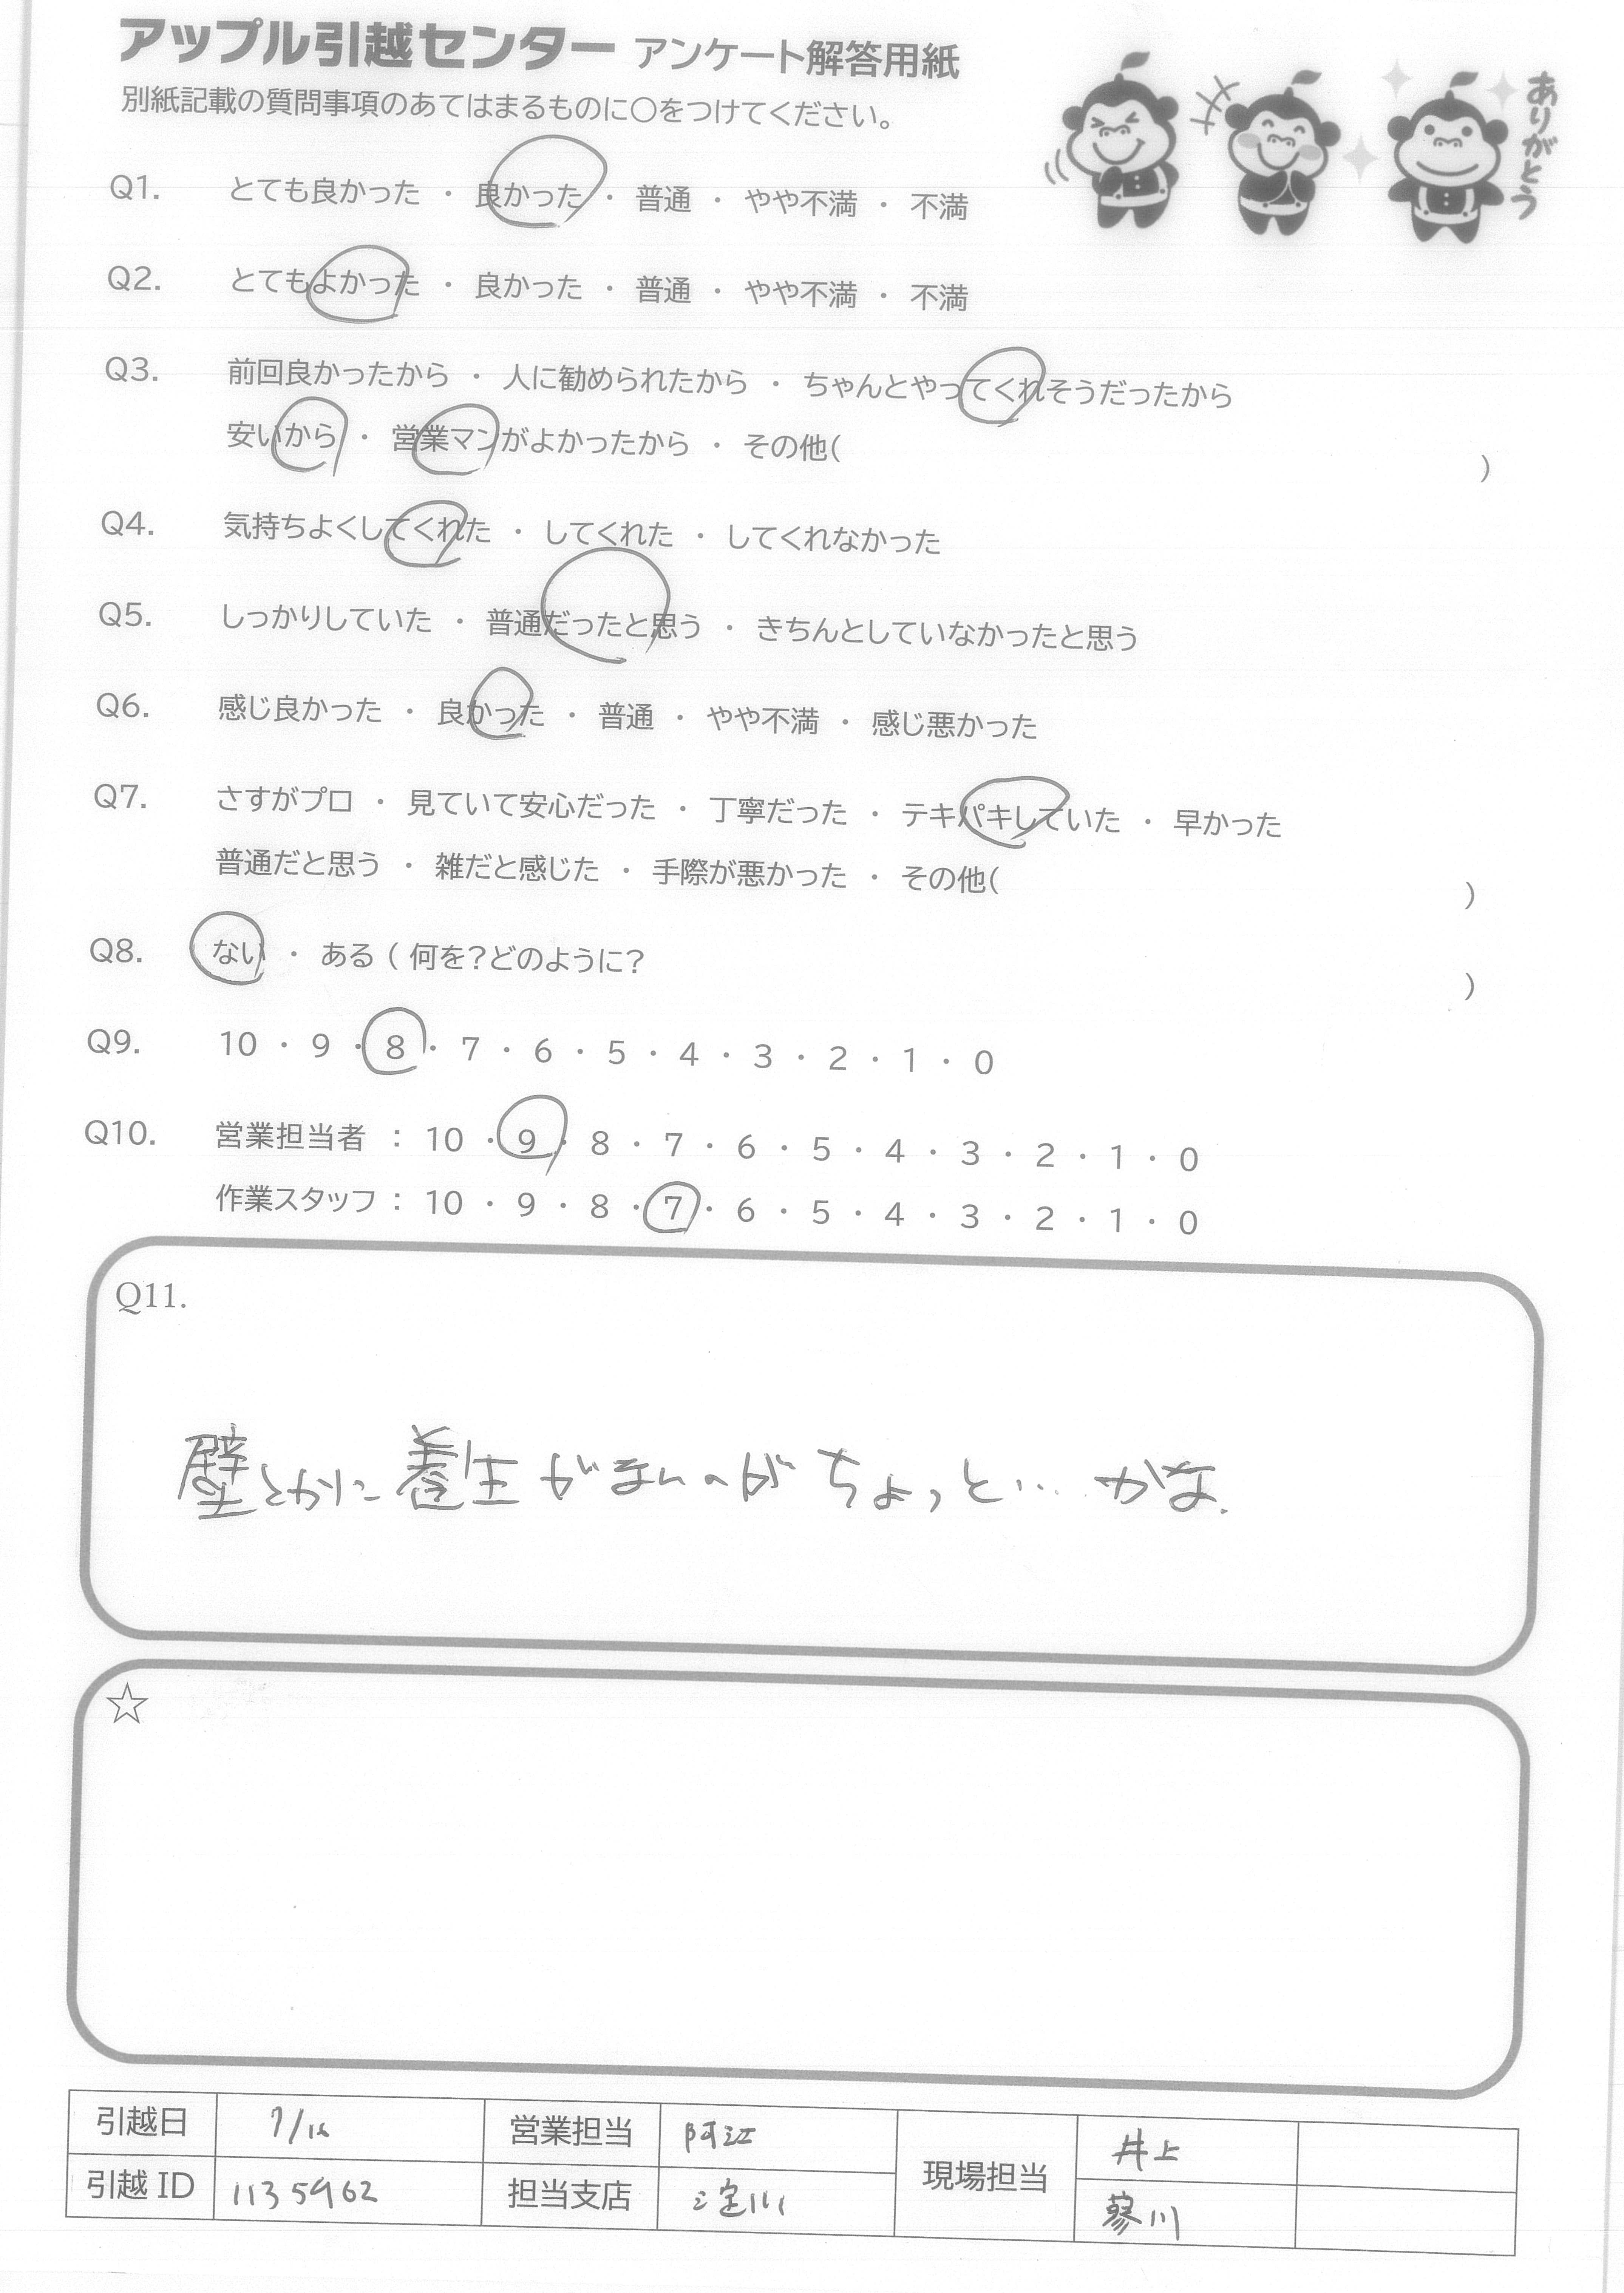 アップル引越センター アンケート解答用紙
ありがとう
別紙記載の質問事項のあてはまるものに○をつけてください。
Q1. とても良かった ・ 良かった ・ 普通 ・ やや不満 ・ 不満
Q2. とてもよかった ・ 良かった ・ 普通 ・ やや不満 ・ 不満
Q3. 前回良かったから ・ 人に勧められたから ・ ちゃんとやってくれそうだったから
安いから ・ 営業マンがよかったから ・ その他( )
Q4. 気持ちよくしてくれた ・ してくれた ・ してくれなかった
Q5. しっかりしていた ・ 普通だったと思う ・ きちんとしていなかったと思う
Q6. 感じ良かった ・ 良かった ・ 普通 ・ やや不満 ・ 感じ悪かった
Q7. さすがプロ ・ 見ていて安心だった ・ 丁寧だった ・ テキパキしていた ・ 早かった
普通だと思う ・ 雑だと感じた ・ 手際が悪かった ・ その他( )
Q8. ない ・ ある ( 何を?どのように? )
Q9. 10 ・ 9 ・ 8 ・ 7 ・ 6 ・ 5 ・ 4 ・ 3 ・ 2 ・ 1 ・ 0
Q10. 営業担当者 : 10 ・ 9 ・ 8 ・ 7 ・ 6 ・ 5 ・ 4 ・ 3 ・ 2 ・ 1 ・ 0
作業スタッフ : 10 ・ 9 ・ 8 ・ 7 ・ 6 ・ 5 ・ 4 ・ 3 ・ 2 ・ 1 ・ 0
Q11.
壁とかに養生がまいのがちょっと… かな.
☆
引越日 営業担当 阿江 現場担当 井上
引越 ID 1135962 担当支店 川